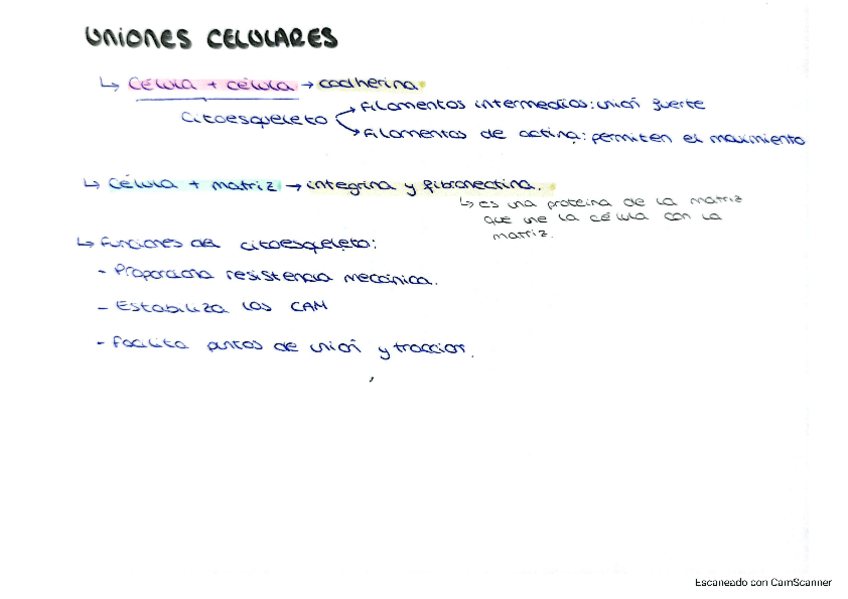 UNIONES CELULARES
↳ Célula + célula → cadherina.
Citoesqueleto → Filamentos intermedios: unión fuerte
→ Filamentos de actina: permiten el movimiento
↳ Célula + matriz → integrina y fibronectina.
↳ es una proteína de la matriz
que une la célula con la
matriz.
↳ Funciones del citoesqueleto:
- Proporciona resistencia mecánica.
- Estabiliza las CAM
- Facilita puntos de unión y tracción.
Escaneado con CamScanner